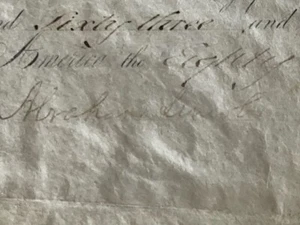 d sixty three and
America the Eighty
Abraham Lincoln